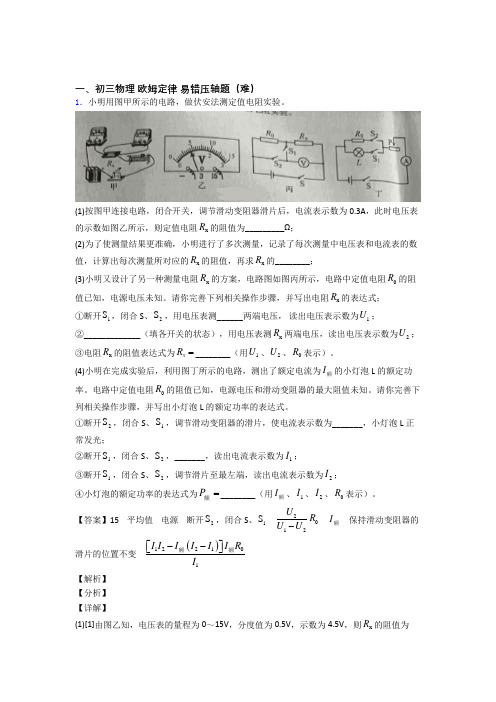 一、初三物理 欧姆定律 易错压轴题（难）
1．小明用图甲所示的电路，做伏安法测定值电阻实验。
甲 乙 丙 丁
(1)按图甲连接电路，闭合开关，调节滑动变阻器滑片后，电流表示数为 0.3A，此时电压表
的示数如图乙所示，则定值电阻 Rx 的阻值为_________Ω；
(2)为了使测量结果更准确，小明进行了多次测量，记录了每次测量中电压表和电流表的数
值，计算出每次测量所对应的 Rx 的阻值，再求 Rx 的________；
(3)小明又设计了另一种测量电阻 Rx 的方案，电路图如图丙所示，电路中定值电阻 R0 的阻
值已知，电源电压未知。请你完善下列相关操作步骤，并写出电阻 Rx 的表达式；
①断开 S1，闭合 S、S2，用电压表测______两端电压， 读出电压表示数为 U1；
②_____________（填各开关的状态），用电压表测 Rx 两端电压，读出电压表示数为 U2；
③电阻 Rx 的阻值表达式为 Rx = ________（用 U1、U2、R0 表示）。
(4)小明在完成实验后，利用图丁所示的电路，测出了额定电流为 I额 的小灯泡 L 的额定功
率。电路中定值电阻 R0 的阻值已知，电源电压和滑动变阻器的最大阻值未知。请你完善下
列相关操作步骤，并写出小灯泡 L 的额定功率的表达式。
①断开 S2，闭合 S、S1，调节滑动变阻器的滑片，使电流表示数为_______，小灯泡 L 正
常发光；
②断开 S1，闭合 S、S2，_______，读出电流表示数为 I1；
③断开 S1，闭合 S、S2，调节滑片至最左端，读出电流表示数为 I2；
④小灯泡的额定功率的表达式为 P额 = ________（用 I额、I1、I2、R0 表示）。
【答案】15 平均值 电源 断开 S2，闭合 S、S1 U2/(U1−U2) R0 I额 保持滑动变阻器的
滑片的位置不变 [I1I2−I额(I2−I1)]I额R0/I1
【解析】
【分析】
【详解】
(1)[1]由图乙知，电压表的量程为 0～15V，分度值为 0.5V，示数为 4.5V，则 Rx 的阻值为